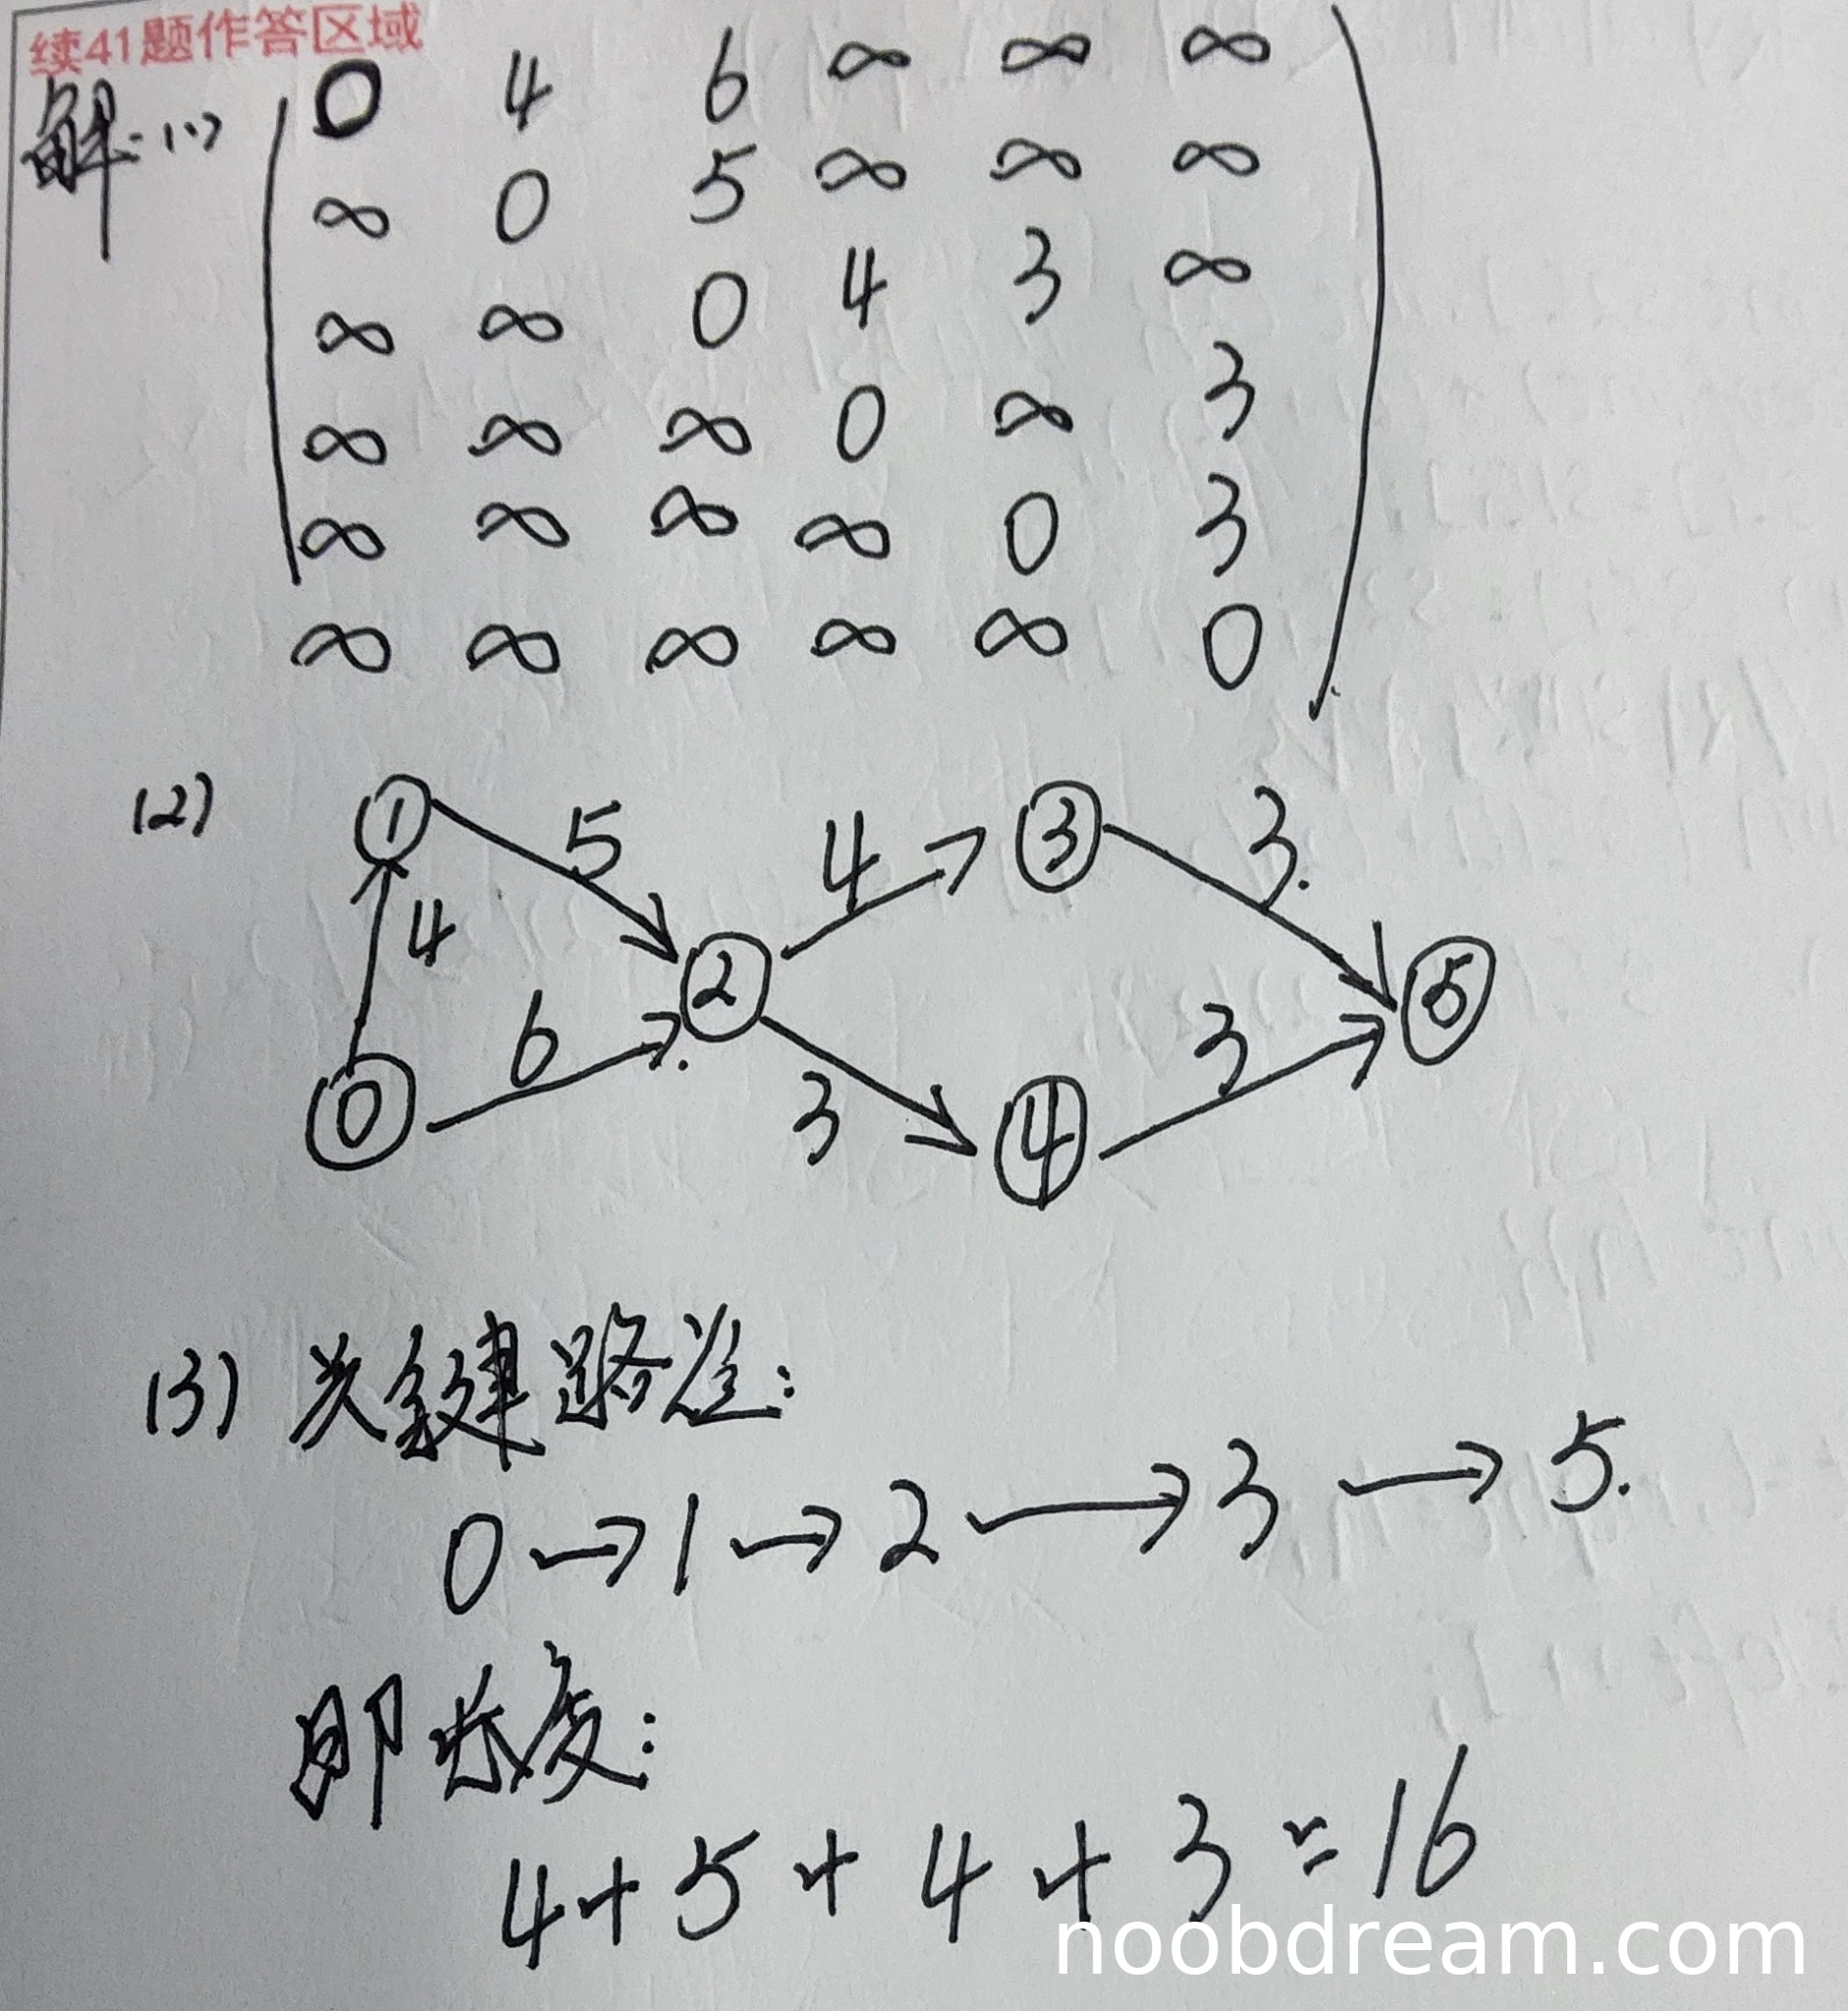 续41题作答区域
解:(1)
0 4 6 ∞ ∞ ∞
∞ 0 5 ∞ ∞ ∞
∞ ∞ 0 4 3 ∞
∞ ∞ ∞ 0 ∞ 3
∞ ∞ ∞ ∞ 0 3
∞ ∞ ∞ ∞ ∞ 0
(2)
1 5 4 3 3.
4 2 5
6 3
0 3 4
(3) 关键路径:
0→1→2→3→5.
即长度:
4+5+4+3=16
noobdream.com